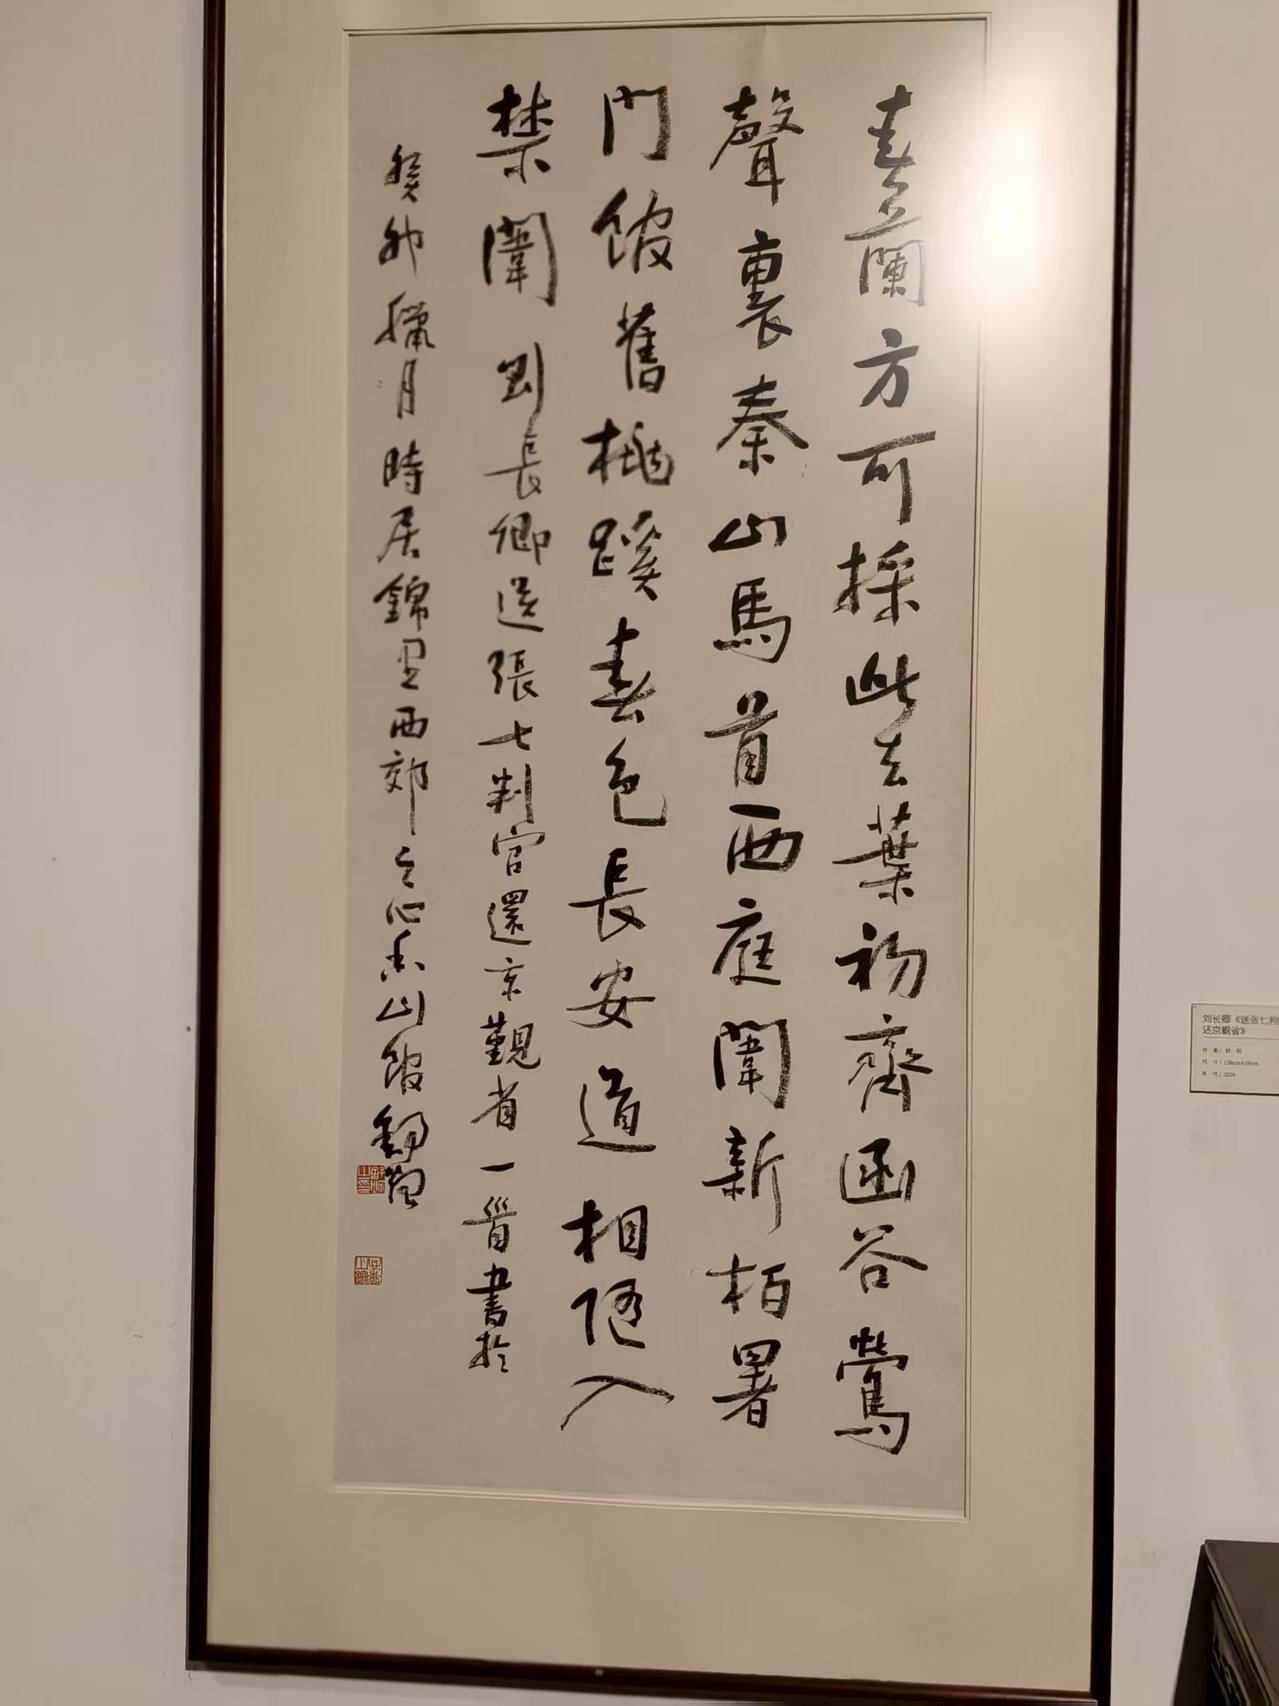 春蘭方可採此去葉初齊函谷鶯
聲裏秦山馬首西庭闈新栢署
門館舊桃蹊春色長安道相随入
禁闈 劉長卿送張七判官還京覲省一首書於
癸卯臘月時居錦里西郊之心山館
刘长卿《送张七判
还京觐省》